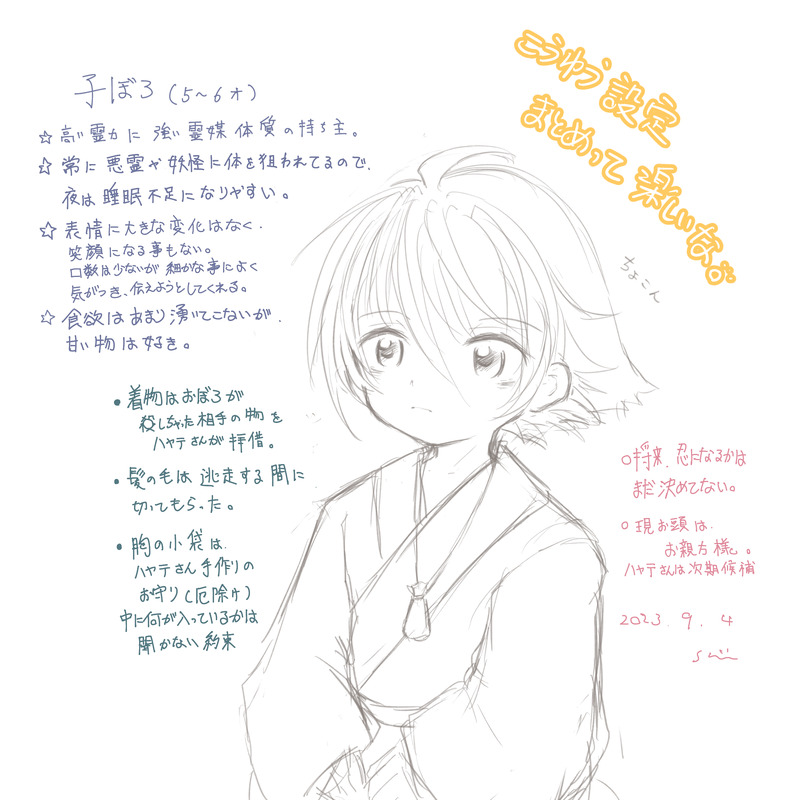 こうゆう設定
まとめって楽しいな。
子ぼろ(5~6才)
☆高い霊力に強い霊媒体質の持ち主。
☆常に悪霊や妖怪に体を狙われてるので、
夜は睡眠不足になりやすい。
☆表情に大きな変化はなく、
笑顔になる事もない。
口数は少ないが細かな事によく
気がつき、伝えようとしてくれる。
☆食欲はあまり湧いてこないが、
甘い物は好き。
ちょこん
•着物はおぼろが
殺しちゃった相手の物を
ハヤテさんが拝借。
•髪の毛は逃走する間に
切ってもらった。
•胸の小袋は、
ハヤテさん手作りの
お守り(厄除け)
中に何が入っているかは
聞かない約束
○将来、忍になるかは
まだ決めてない。
○現お頭は、
お親方様。
ハヤテさんは次期候補
2023.9.4